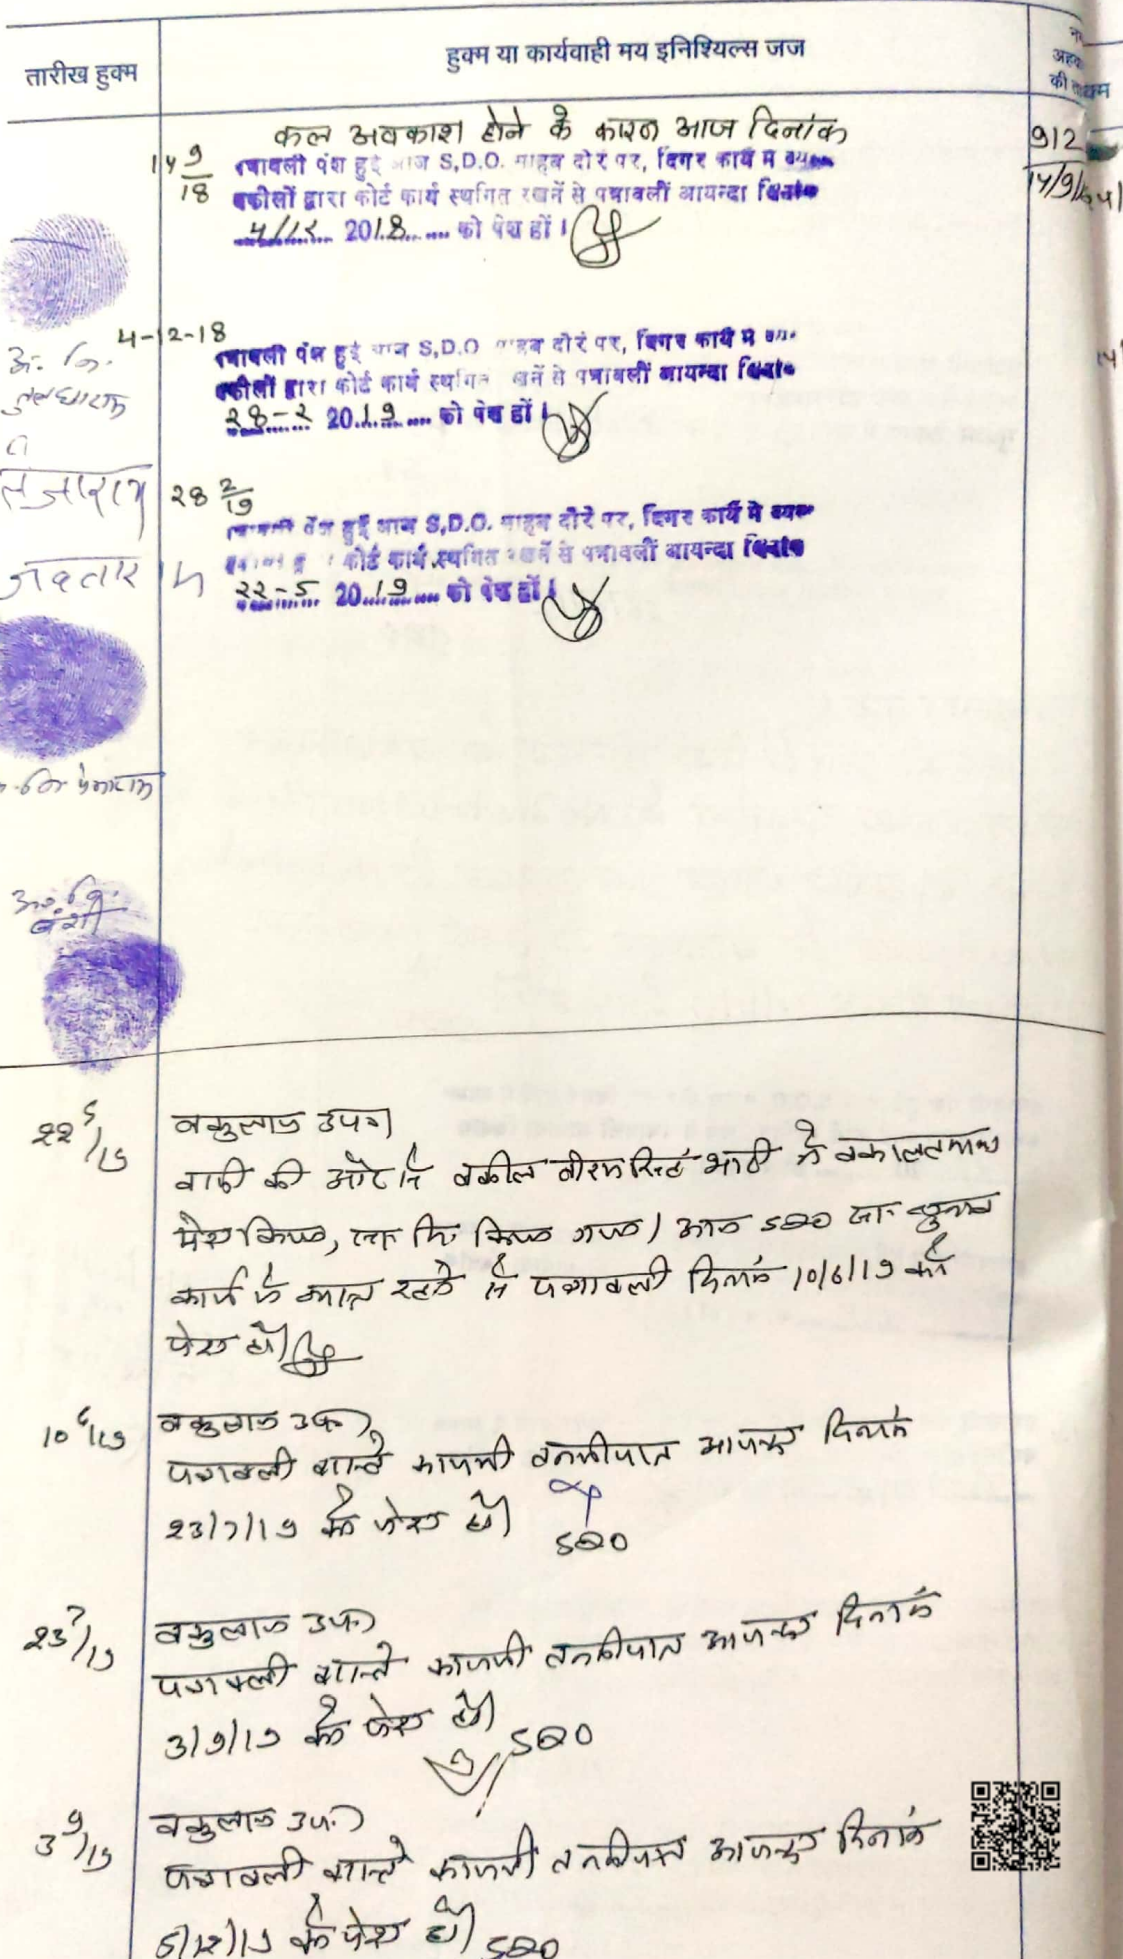 तारीख हुक्म
हुक्म या कार्यवाही मय इनिश्यिल्स जज
की
कल अवकाश होने के कारन आज दिनांक
912
14/9/18
14 9/18
पत्रावली पेश हुई आज S.D.O. साहब दोरे पर, दिगर कार्य मे
वकीलों द्वारा कोर्ट कार्य स्थगित रखनें से पत्रावलीं आयन्दा दिनांक
4/12 2018 को पेश हों।
4-12-18
पत्रावली पेश हुई आज S.D.O साहब दोरे पर, दिगर कार्य मे
वकीलों द्वारा कोर्ट कार्य स्थगित रखनें से पत्रावलीं आयन्दा दिनांक
28-2 2019 को पेश हों।
अ. नि.
तेजाराम
28 2/19
पत्रावली पेश हुई आज S.D.O. साहब दोरे पर, दिगर कार्य मे
कोर्ट कार्य स्थगित रखनें से पत्रावलीं आयन्दा दिनांक
22-5 2019 को पेश हों।
अ. नि.
बंशी
22 5/19
वकुलाय उप0
वादी की ओर से वकील भाटी ने वकालतनामा
पेश किया, गया। आज SDO चुनाव
कार्य में व्यस्त रहने से पत्रावली दिनांक 10/6/19 को
पेश हो।
10 6/19
वकुलाय उप0
पत्रावली वास्ते कायमी तनकीयात आयन्दा दिनांक
23/7/19 को पेश हो।
SDO
23 7/19
वकुलाय उप0
पत्रावली वास्ते कायमी तनकीयात आयन्दा दिनांक
3/9/19 को पेश हो।
SDO
3 9/19
वकुलाय उप0
पत्रावली वास्ते कायमी तनकीयात आयन्दा दिनांक
5/12/19 को पेश हो।
SDO